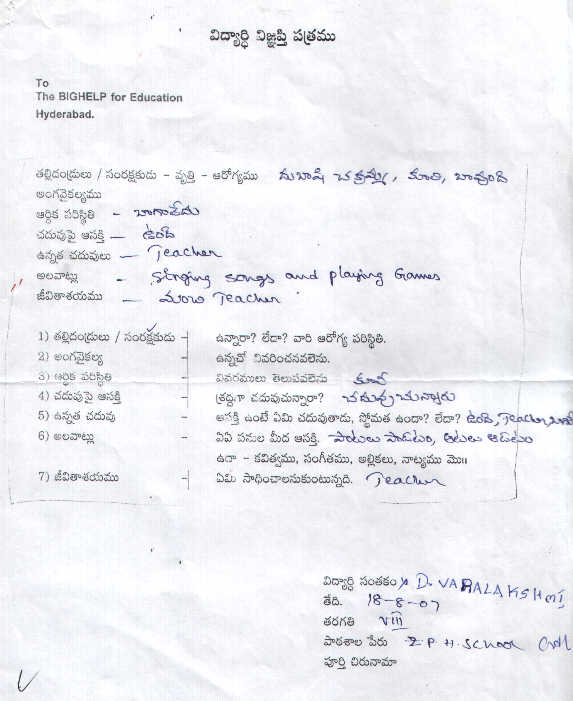 విద్యార్థి విజ్ఞప్తి పత్రము
To
The BIGHELP for Education
Hyderabad.
తల్లిదండ్రులు / సంరక్షకుడు - వృత్తి - ఆరోగ్యము దుబాషి చక్రమ్మ, కూలి, బావుంది
అంగవైకల్యము
ఆర్థిక పరిస్థితి - బాగాలేదు
చదువుపై ఆసక్తి - ఉంది
ఉన్నత చదువులు - Teacher
అలవాట్లు - Singing songs and playing Games
జీవితాశయము - Teacher
1) తల్లిదండ్రులు / సంరక్షకుడు - ఉన్నారా? లేదా? వారి ఆరోగ్య పరిస్థితి.
2) అంగవైకల్య - ఉన్నచో వివరించవలెను.
3) ఆర్థిక పరిస్థితి - వివరములు తెలుపవలెను కూలి
4) చదువుపై ఆసక్తి - శ్రద్ధగా చదువుచున్నారా? చదువుచున్నారు
5) ఉన్నత చదువు - ఆసక్తి ఉంటే ఏమి చదువుతాడు, స్థోమత ఉందా? లేదా? ఉంది, Teacher,
6) అలవాట్లు - ఏఏ పనుల మీద ఆసక్తి. పాటలు పాడటం, ఆటలు ఆడటం
ఉదా - కవిత్వము, సంగీతము, అల్లికలు, నాట్యము మొ॥
7) జీవితాశయము - ఏమి సాధించాలనుకుంటున్నది. Teacher
విద్యార్థి సంతకం D. VARALAKSHMI
తేది. 18-8-07
తరగతి VIII
పాఠశాల పేరు Z.P.H. School
పూర్తి చిరునామా